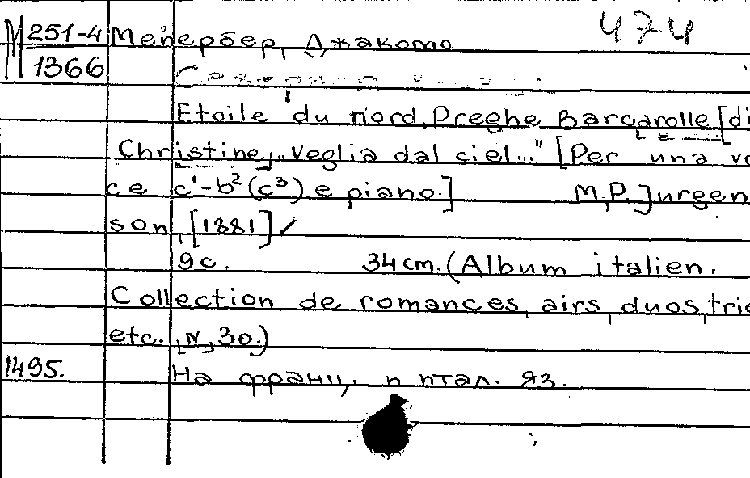 М 251-4 Мейербер, Джакомо 474
1366
Etoile du nord. Preghe. Barcarolle [di
Christine,, "Veglia dal ciel..." [Per una vo
ce c¹-b²(c³) e piano.] М,P. Jurgen
son, [1881]
9с. 34cm. (Album italien.
Collection de romances, airs, duos, trio
etc., N, 30.)
1495. На франц. и итал. яз.